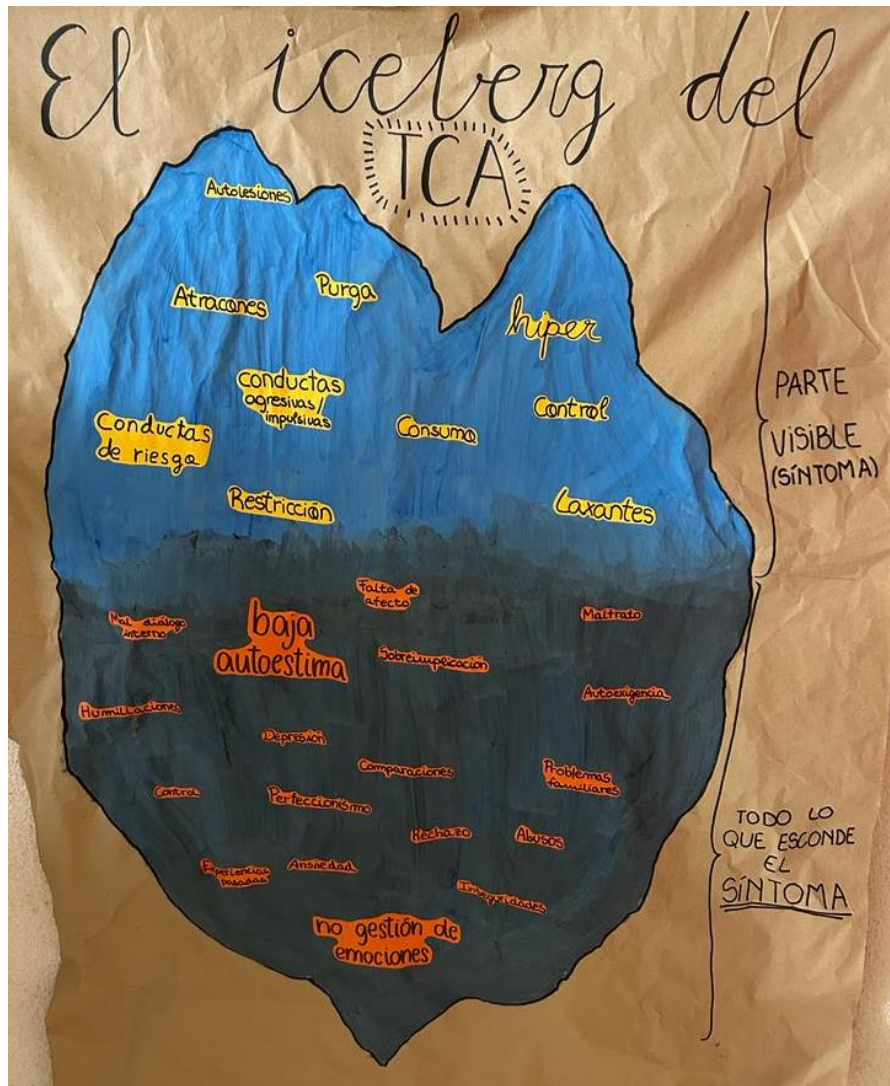 El iceberg del
TCA
Autolesiones
Atracones
Purga
hiper
conductas
agresivas/
impulsivas
Control
Conductas
de riesgo
Consumo
Restricción
Laxantes
PARTE
VISIBLE
(SÍNTOMA)
Falta de
afecto
Mal diálogo
interno
baja
autoestima
Maltrato
Sobreimplicación
Autoexigencia
Humillaciones
Depresión
Comparaciones
Problemas
familiares
Control
Perfeccionismo
Rechazo
Abusos
Experiencias
pasadas
Ansiedad
Inseguridades
no gestión de
emociones
TODO LO
QUE ESCONDE
EL
SÍNTOMA